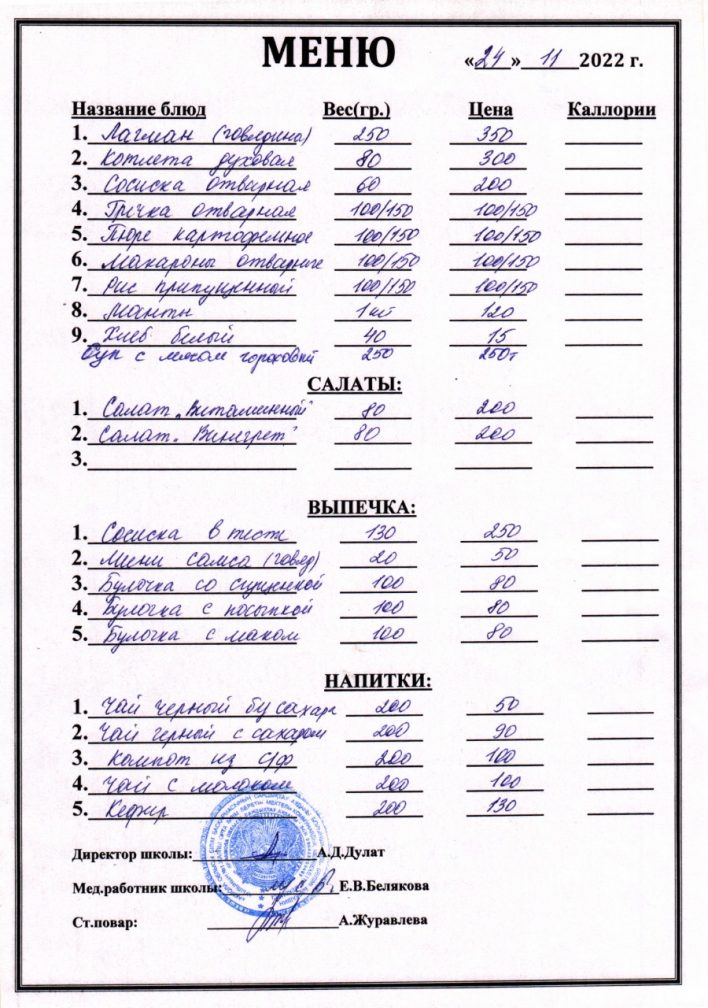 МЕНЮ «24» 11 2022 г.
Название блюд Вес(гр.) Цена Каллории
1. Лагман (говядина) 250 350
2. Котлета духовая 80 300
3. Сосиска отварная 60 200
4. Гречка отварная 100/150 100/150
5. Пюре картофельное 100/150 100/150
6. Макароны отварные 100/150 100/150
7. Рис припущенный 100/150 100/150
8. Манты 1 шт 120
9. Хлеб белый 40 15
Суп с мясом гороховый 250 250т
САЛАТЫ:
1. Салат „Витаминный" 80 200
2. Салат „Винегрет" 80 200
3.
ВЫПЕЧКА:
1. Сосиска в тесте 130 250
2. Мини самса (говяд) 20 50
3. Булочка со сгущенкой 100 80
4. Булочка с посыпкой 100 80
5. Булочка с маком 100 80
НАПИТКИ:
1. Чай черный без сахара 200 50
2. Чай черный с сахаром 200 90
3. Компот из с/ф 200 100
4. Чай с молоком 200 100
5. Кефир 200 130
Директор школы: А.Д.Дулат
Мед.работник школы: Е.В.Белякова
Ст.повар: А.Журавлева